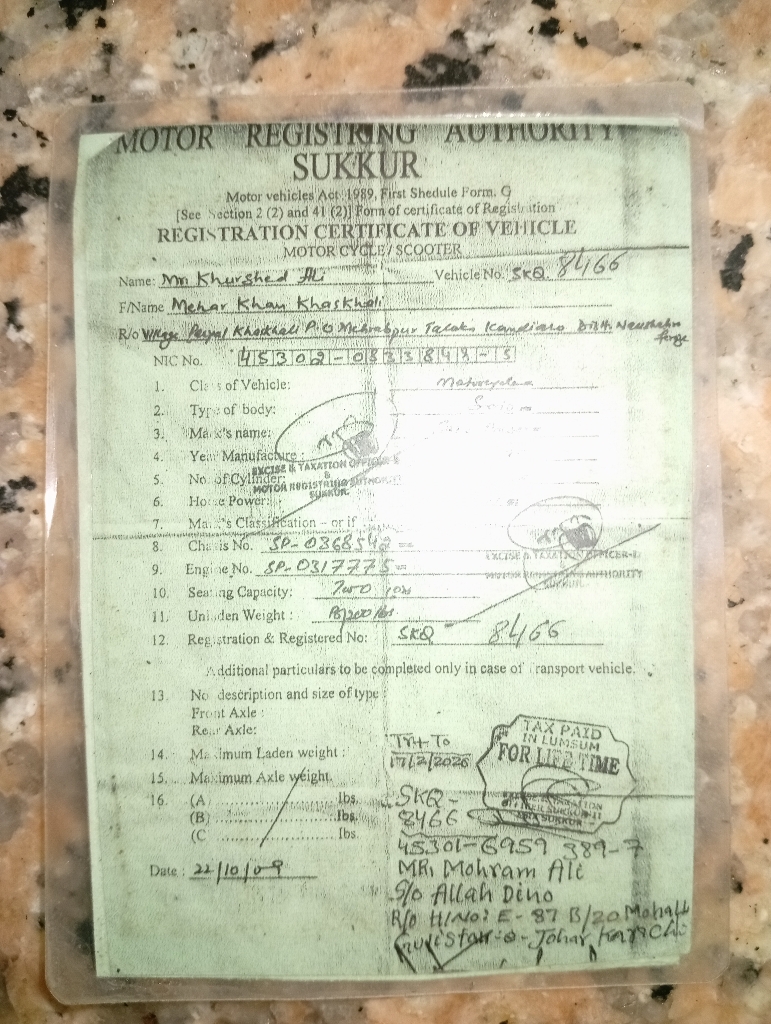 MOTOR REGISTRING AUTHORITY
SUKKUR
Motor vehicles Act, 1989, First Shedule Form. G
[See Section 2 (2) and 41 (2)] Form of certificate of Registration
REGISTRATION CERTIFICATE OF VEHICLE
MOTOR CYCLE / SCOOTER
Name: Mr. Khurshed Ali Vehicle No. SKQ 8466
F/Name Mehar Khan Khaskhali
R/o Village Khaskhali P.O Mehrabpur Taluka Kandiaro Distt. Naushahro
feroze
NIC No. 45302-0833848-3
1. Class of Vehicle: Motorcycle
2. Type of body:
3. Mark's name:
4. Year Manufacture :
5. No. of Cylinder:
6. Horse Power:
7. Mark's Classification - or if
8. Chasis No. SP-0368542
9. Engine No. SP-0317775
10. Seating Capacity: Two
11. Unladen Weight :
12. Registration & Registered No: SKQ 8466
EXCISE & TAXATION OFFICER-I
&
MOTOR REGISTRING AUTHORITY
SUKKUR.
EXCISE & TAXATION OFFICER-I
MOTOR REGISTRING AUTHORITY
SUKKUR.
Additional particulars to be completed only in case of transport vehicle.
13. No description and size of type :
Front Axle :
Rear Axle:
14. Maximum Laden weight :
15. Maximum Axle weight.
16. (A) ........................ lbs.
(B) ........................ lbs.
(C ........................ lbs.
Date : 22/10/09
TAX PAID
IN LUMSUM
FOR LIFE TIME
SUKKUR
Tr+ To
17/2/2026
SKQ-
8466
45301-6959389-7
MR. Mohram Ali
S/o Allah Dino
R/o H/No: E-87 B/20 Mohall
Gulistan-e-Johar Karachi